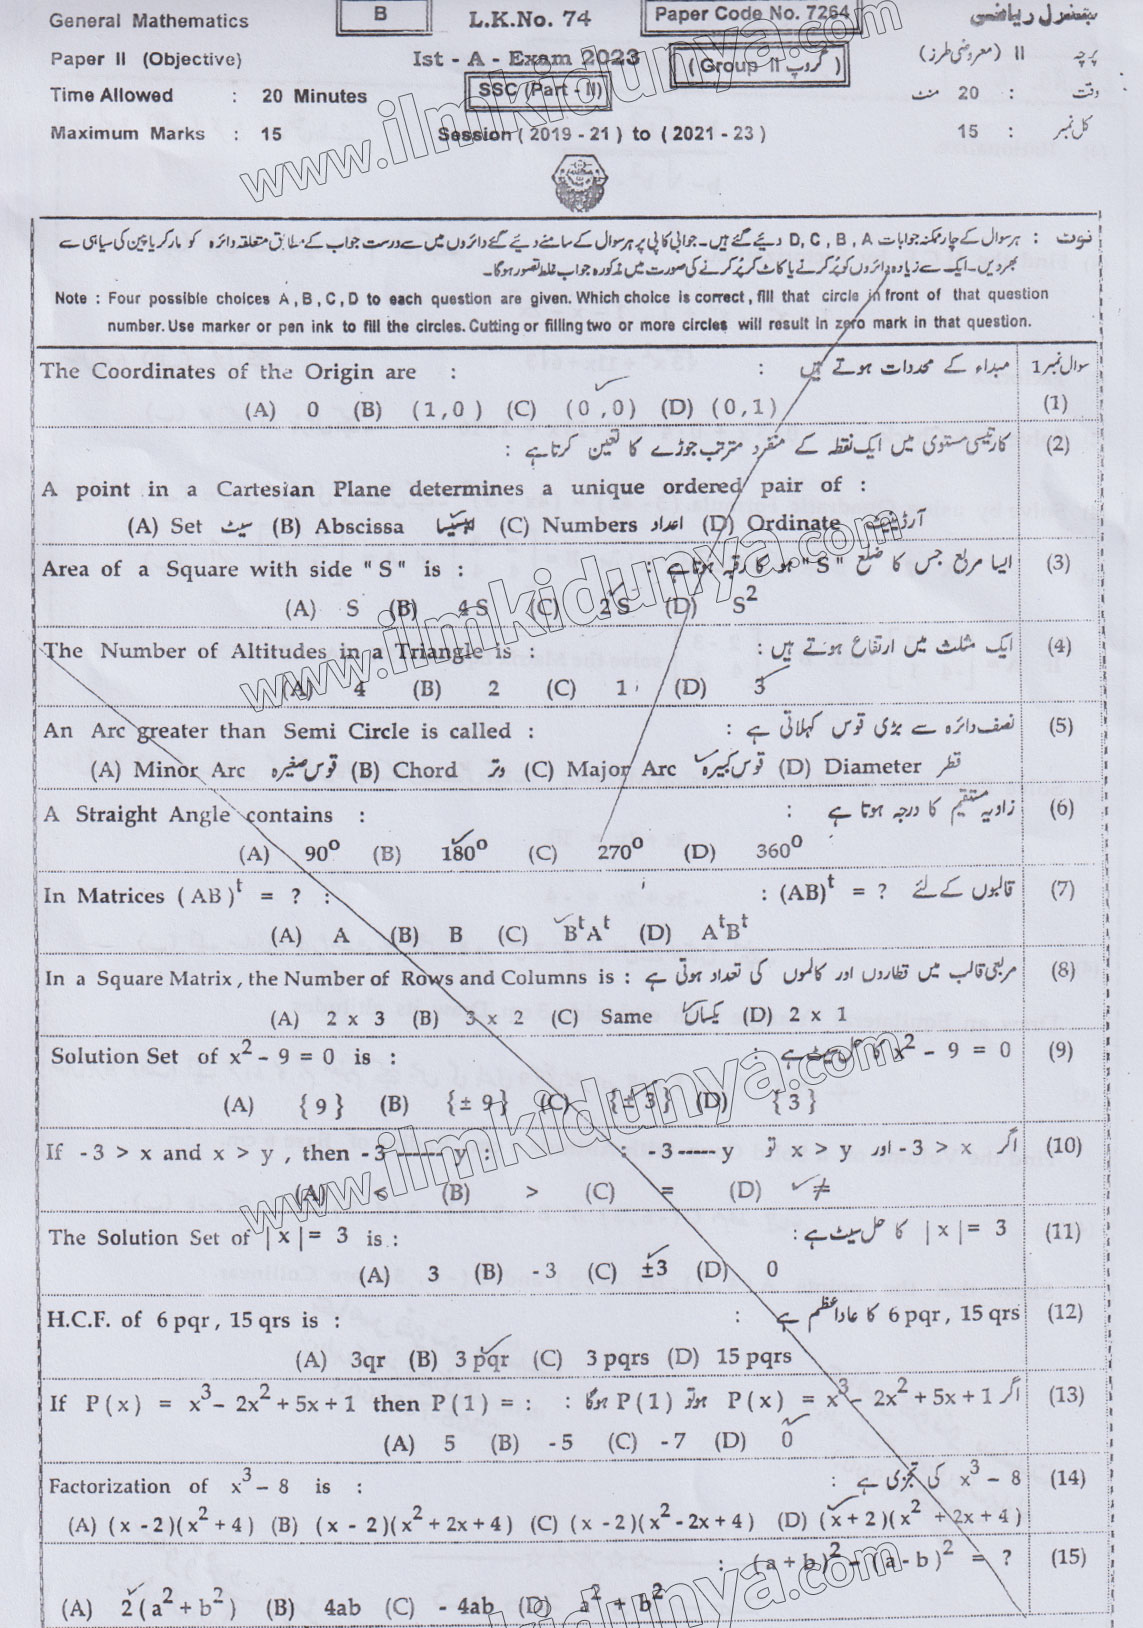 General Mathematics B L.K.No. 74 Paper Code No. 7264 جنرل ریاضی
Paper II (Objective) Ist - A - Exam 2023 (Group II گروپ) پرچہ II (معروضی طرز)
Time Allowed : 20 Minutes SSC (Part - II) وقت : 20 منٹ
Maximum Marks : 15 Session ( 2019 - 21 ) to ( 2021 - 23 ) کل نمبر : 15
نوٹ : ہر سوال کے چار ممکنہ جوابات A , B , C , D دیئے گئے ہیں۔ جوابی کاپی پر ہر سوال کے سامنے دیئے گئے دائروں میں سے درست جواب کے مطابق متعلقہ دائرہ کو مارکر یا پین کی سیاہی سے
بھر دیں۔ ایک سے زیادہ دائروں کو پُر کرنے یا کاٹ کر پُر کرنے کی صورت میں مذکورہ جواب غلط تصور ہوگا۔
Note : Four possible choices A , B , C , D to each question are given. Which choice is correct , fill that circle in front of that question
number. Use marker or pen ink to fill the circles. Cutting or filling two or more circles will result in zero mark in that question.
The Coordinates of the Origin are : مبداء کے محددات ہوتے ہیں : سوال نمبر 1
(A) 0 (B) ( 1 , 0 ) (C) ( 0 , 0 ) (D) ( 0 , 1 ) (1)
کارتیسی مستوی میں ایک نقطہ کے منفرد مترتب جوڑے کا تعین کرتا ہے : (2)
A point in a Cartesian Plane determines a unique ordered pair of :
(A) Set سیٹ (B) Abscissa ایبسیسا (C) Numbers اعداد (D) Ordinate آرڈینیٹ
Area of a Square with side " S " is : ایسا مربع جس کا ضلع " S " ہو کا رقبہ ہوتا ہے : (3)
(A) S (B) 4 S (C) 2 S (D) S²
The Number of Altitudes in a Triangle is : ایک مثلث میں ارتفاع ہوتے ہیں : (4)
(A) 4 (B) 2 (C) 1 (D) 3
An Arc greater than Semi Circle is called : نصف دائرہ سے بڑی قوس کہلاتی ہے : (5)
(A) Minor Arc قوس صغیرہ (B) Chord وتر (C) Major Arc قوس کبیرہ (D) Diameter قطر
A Straight Angle contains : زاویہ مستقیم کا درجہ ہوتا ہے : (6)
(A) 90° (B) 180° (C) 270° (D) 360°
In Matrices ( AB )ᵗ = ? : قالبوں کے لئے (AB)ᵗ = ? : (7)
(A) A (B) B (C) BᵗAᵗ (D) AᵗBᵗ
In a Square Matrix , the Number of Rows and Columns is : مربعی قالب میں قطاروں اور کالموں کی تعداد ہوتی ہے (8)
(A) 2 x 3 (B) 3 x 2 (C) Same یکساں (D) 2 x 1
Solution Set of x² - 9 = 0 is : x² - 9 = 0 کا حل سیٹ ہے : (9)
(A) { 9 } (B) {± 9 } (C) {± 3 } (D) { 3 }
If - 3 > x and x > y , then - 3 ------ y : اگر - 3 > x اور x > y تو - 3 ----- y : (10)
(A) < (B) > (C) = (D) ≠
The Solution Set of | x | = 3 is : | x | = 3 کا حل سیٹ ہے : (11)
(A) 3 (B) - 3 (C) ±3 (D) 0
H.C.F. of 6 pqr , 15 qrs is : 6 pqr , 15 qrs کا عاداعظم ہے : (12)
(A) 3qr (B) 3 pqr (C) 3 pqrs (D) 15 pqrs
If P ( x ) = x³ - 2x² + 5x + 1 then P ( 1 ) = : اگر P ( x ) = x³ - 2x² + 5x + 1 ہو تو P ( 1 ) ہوگا : (13)
(A) 5 (B) - 5 (C) - 7 (D) 0
Factorization of x³ - 8 is : x³ - 8 کی تجزی ہے : (14)
(A) ( x - 2 )( x² + 4 ) (B) ( x - 2 )( x² + 2x + 4 ) (C) ( x - 2 )( x² - 2x + 4 ) (D) ( x + 2 )( x² + 2x + 4 )
( a + b )² - ( a - b )² = ? : (15)
(A) 2 ( a² + b² ) (B) 4ab (C) - 4ab (D) a² + b²
www.ilmkidunya.com
www.ilmkidunya.com
www.ilmkidunya.com
www.ilmkidunya.com